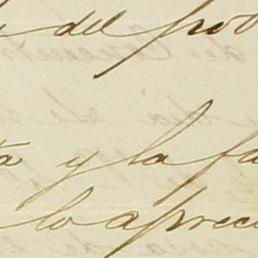 del pob
y la fa
lo aprec